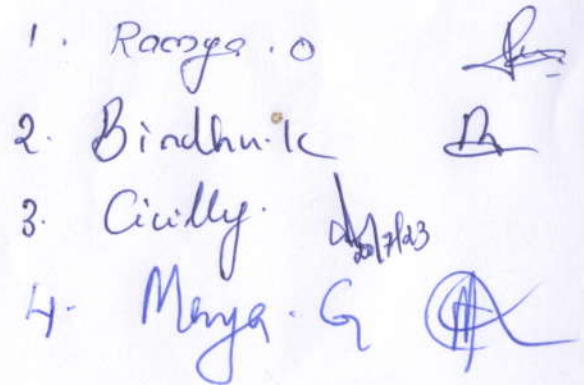 1. Ramya.O
2. Bindhu.k
3. Cicilly. 20/7/23
4. Manya.G